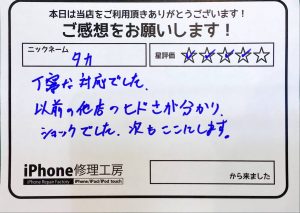 本日は当店をご利用頂きありがとうございます!
ご感想をお願いします!
ニックネーム
タカ
星評価 ☆☆☆☆☆
丁寧な対応でした。
以前の他店のヒドさが分かり、
ショックでした。次もここにします。
iPhone修理工房
iPhone Repair Factory iPhone/iPad/iPod touch
から来ました